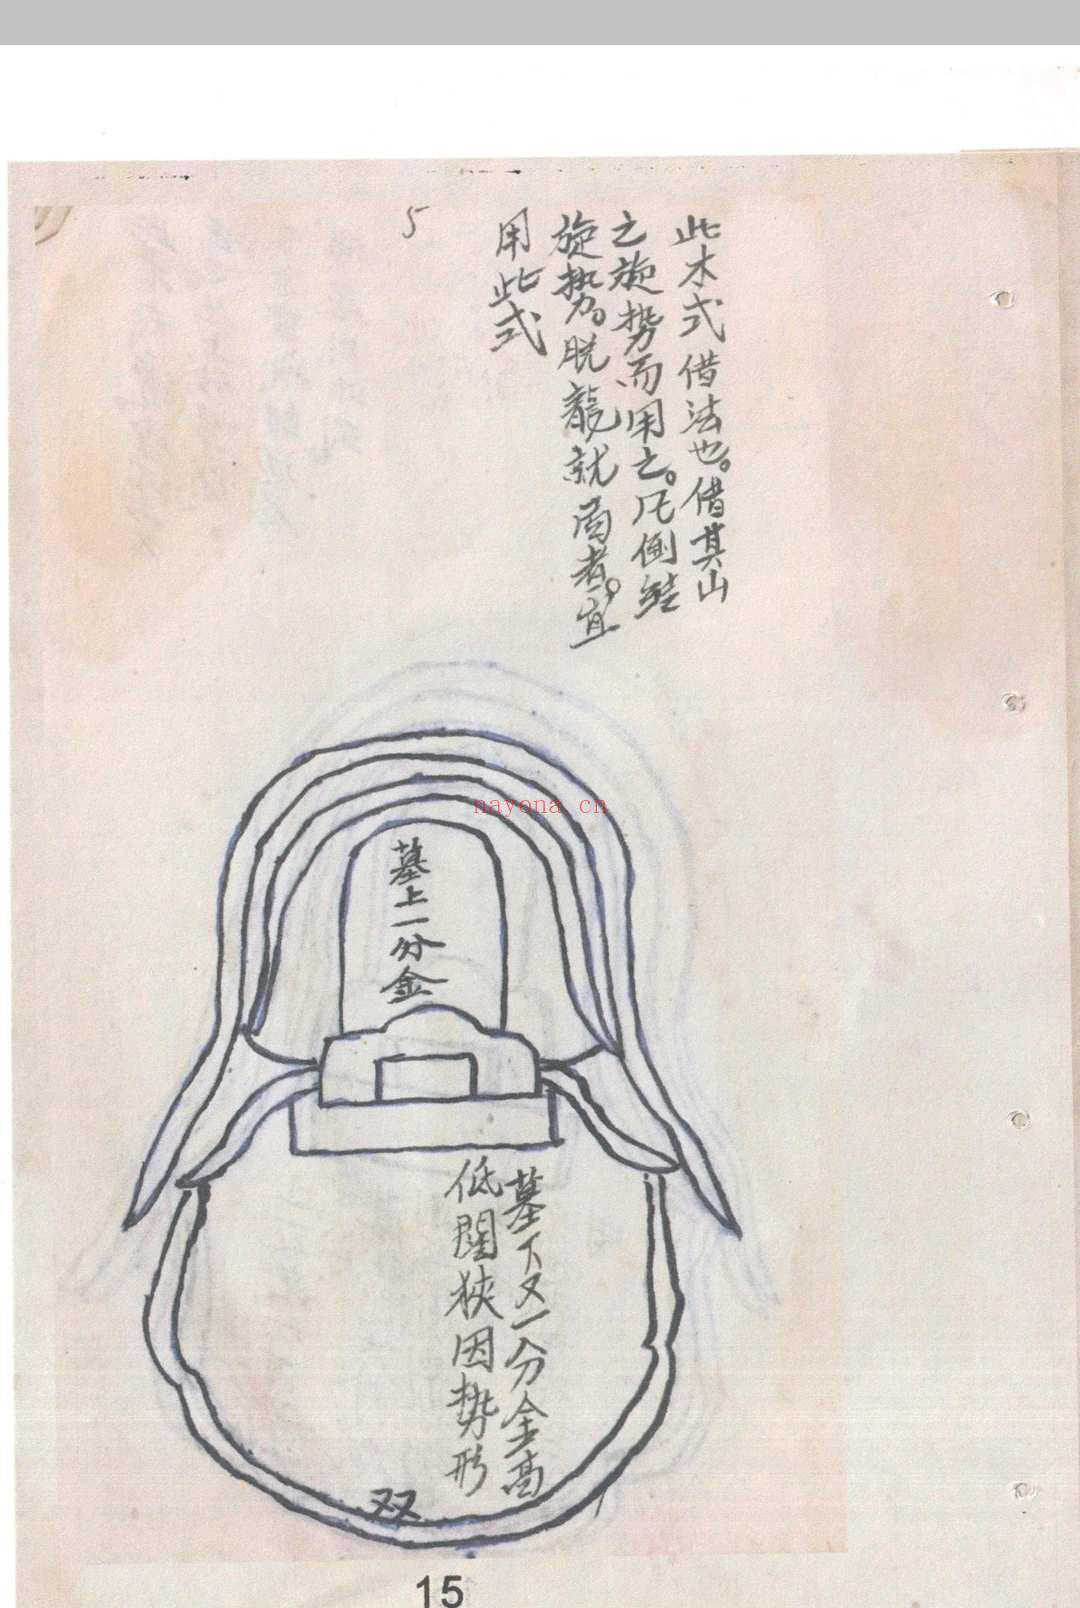 此木式借法也。借其山
之旋势而用之。凡倒
旋势。脱龍就局者。宜
用此式
5
nayona.cn
墓上一分金
墓下又一分金高
低阔狭因势形
双
15